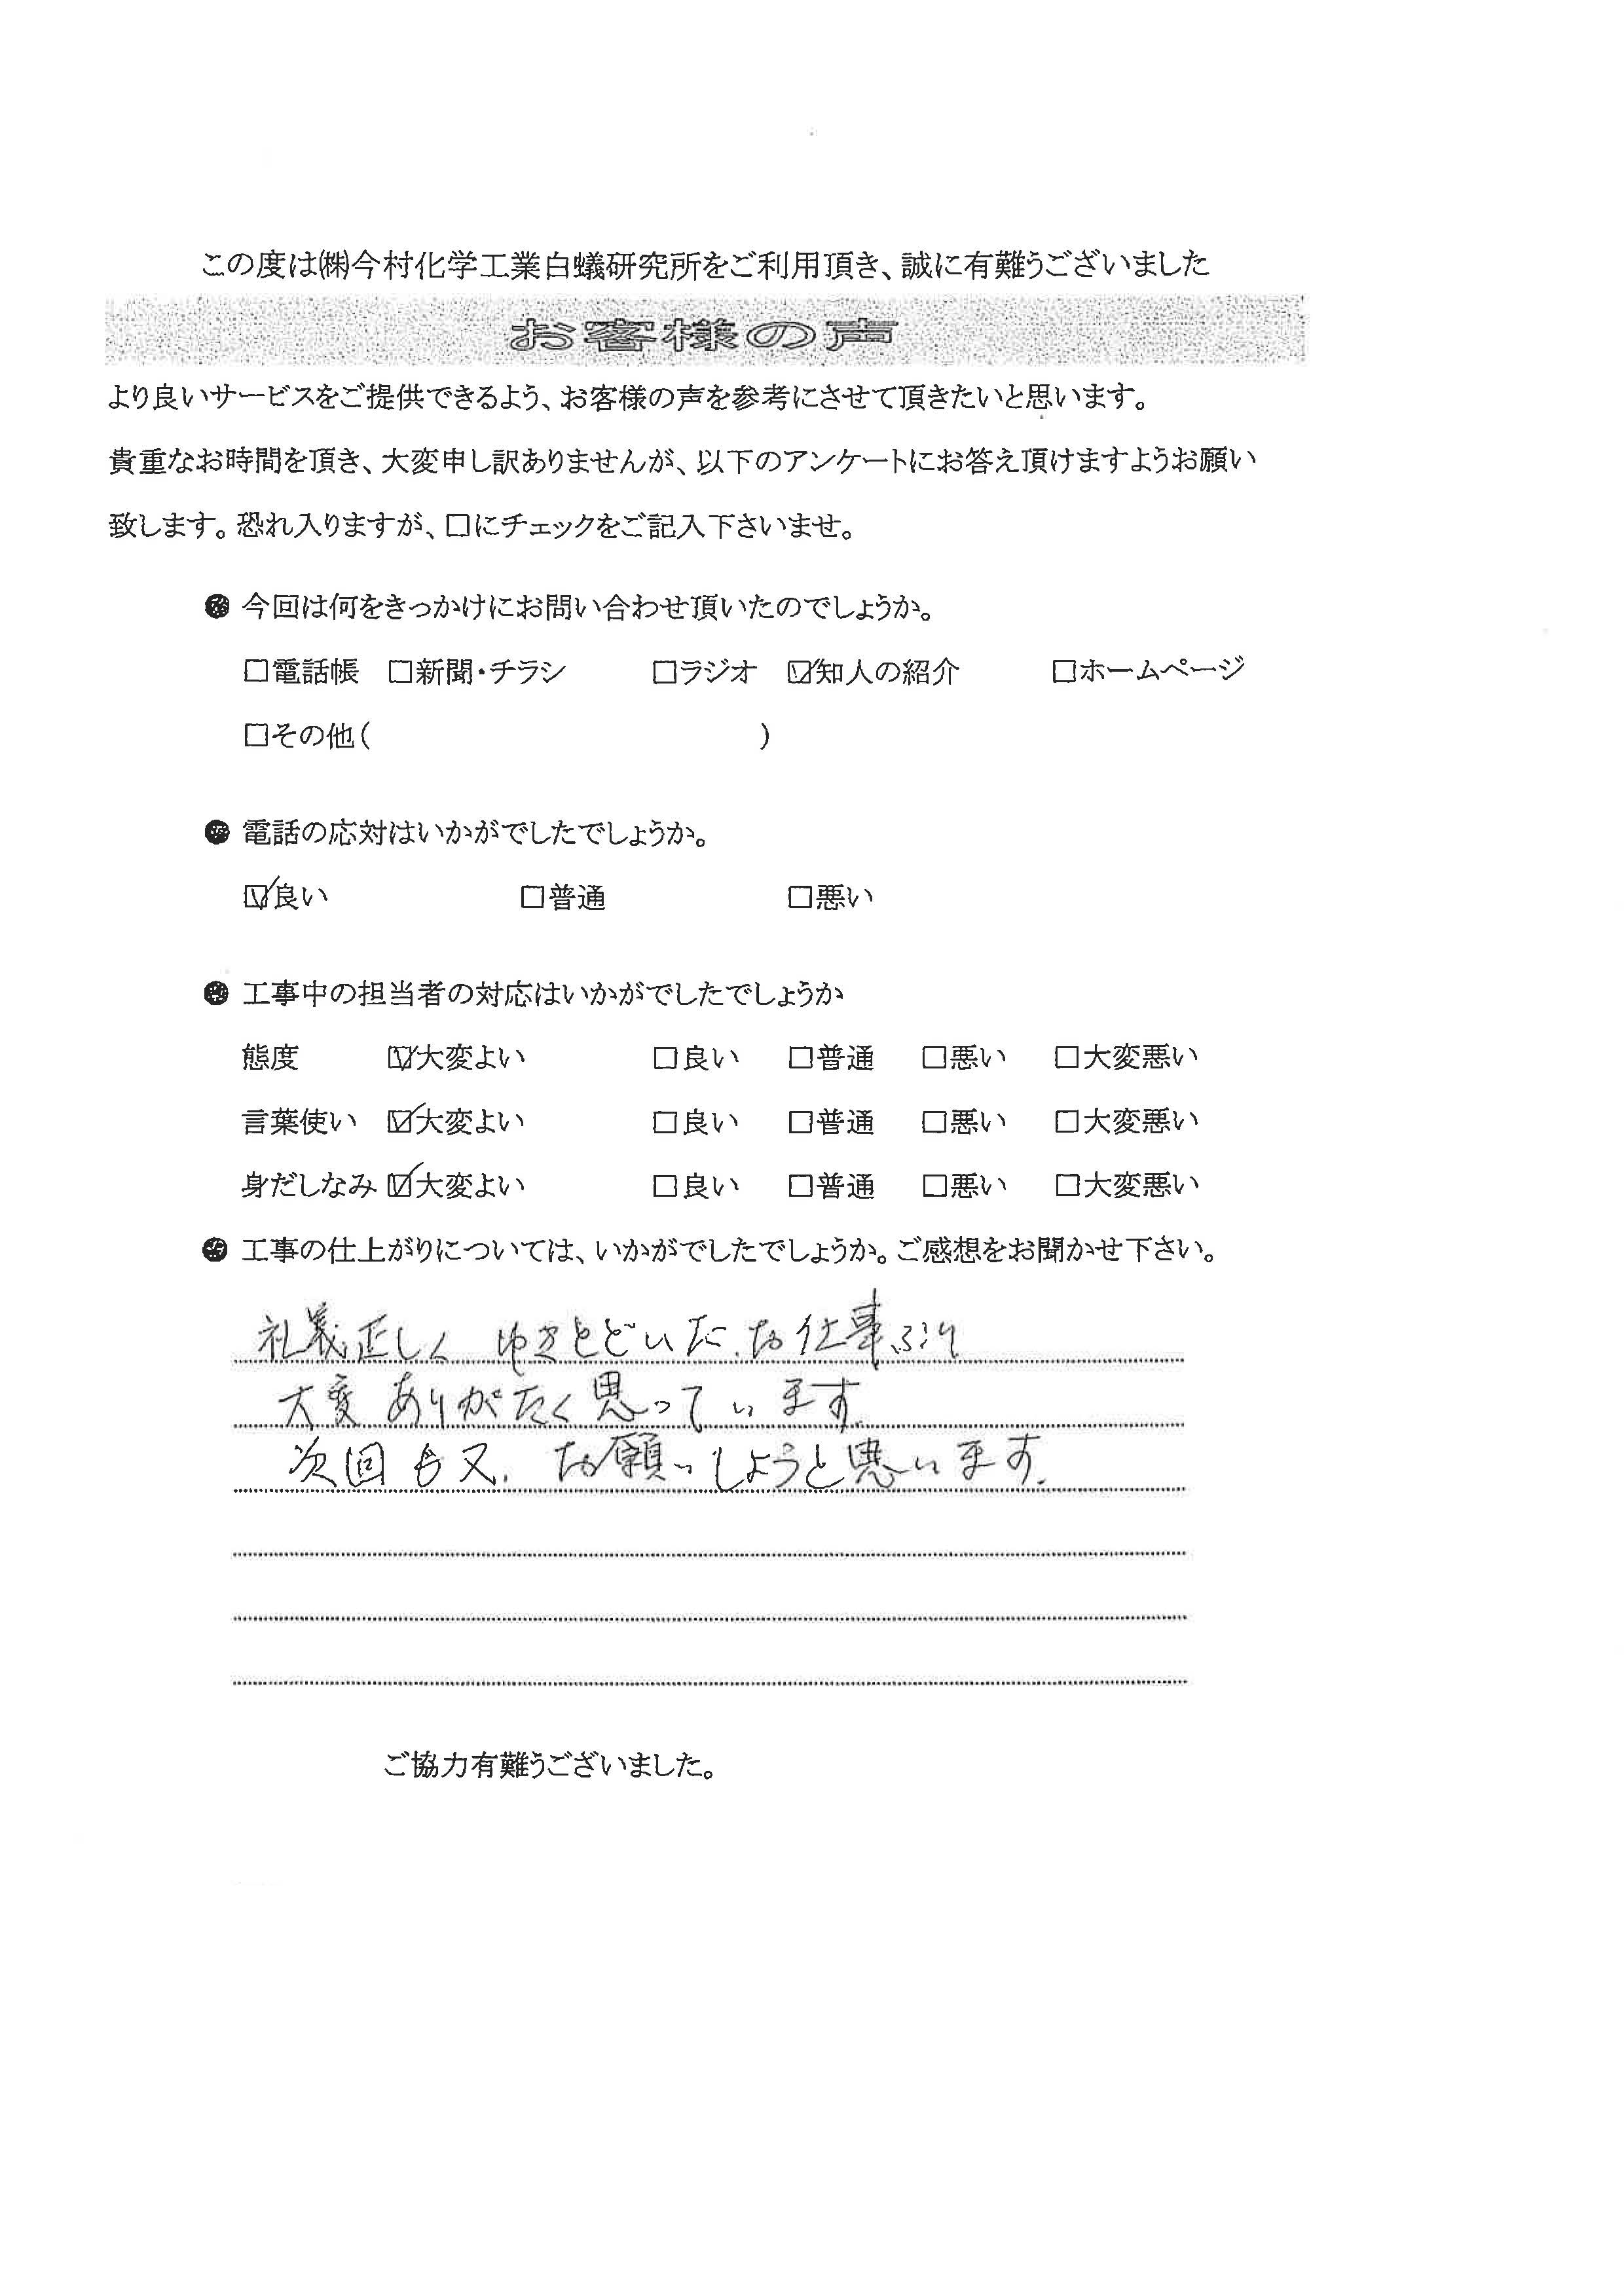 この度は㈱今村化学工業白蟻研究所をご利用頂き、誠に有難うございました
お客様の声
より良いサービスをご提供できるよう、お客様の声を参考にさせて頂きたいと思います。
貴重なお時間を頂き、大変申し訳ありませんが、以下のアンケートにお答え頂けますようお願い
致します。恐れ入りますが、□にチェックをご記入下さいませ。
● 今回は何をきっかけにお問い合わせ頂いたのでしょうか。
□電話帳 □新聞・チラシ □ラジオ ☑知人の紹介 □ホームページ
□その他( )
● 電話の応対はいかがでしたでしょうか。
☑良い □普通 □悪い
● 工事中の担当者の対応はいかがでしたでしょうか
態度 ☑大変よい □良い □普通 □悪い □大変悪い
言葉使い ☑大変よい □良い □普通 □悪い □大変悪い
身だしなみ ☑大変よい □良い □普通 □悪い □大変悪い
● 工事の仕上がりについては、いかがでしたでしょうか。ご感想をお聞かせ下さい。
礼義正しく ゆきとどいた、お仕事ぶり
大変ありがたく思っています。
次回も又、お願いしようと思います。
ご協力有難うございました。